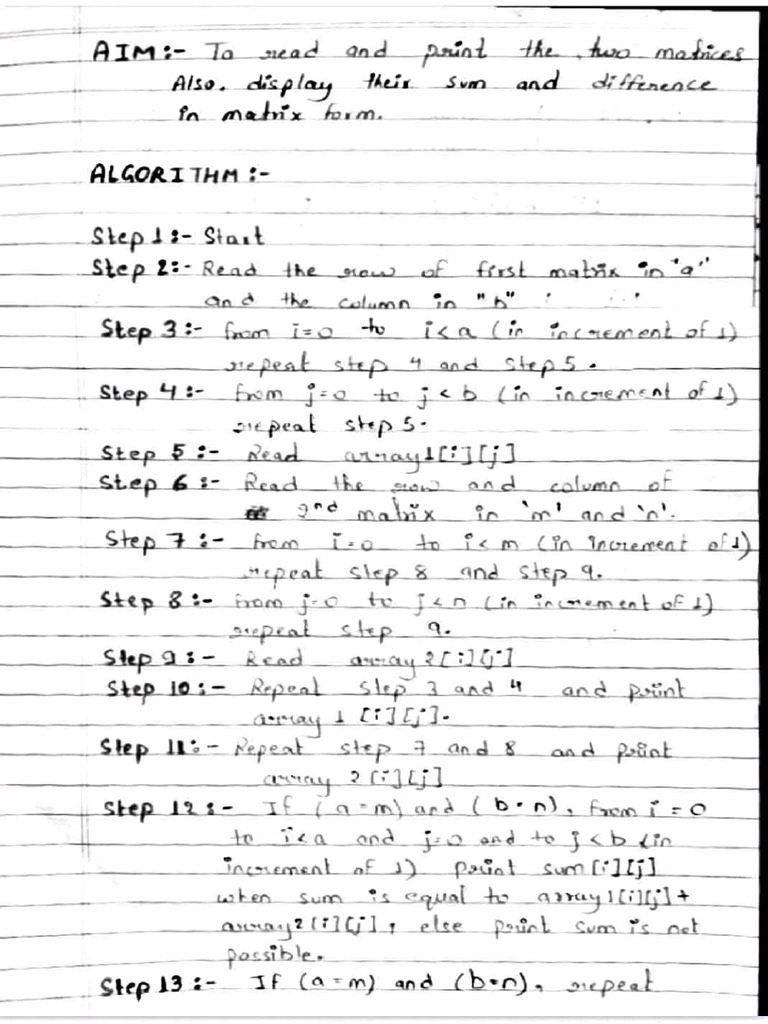 AIM:- To read and print the two matrices
Also. display their sum and difference
in matrix form.
ALGORITHM :-
Step 1:- Start
Step 2:- Read the row of first matrix in "a"
and the column in "b"
Step 3:- from i=0 to i<a (in increment of 1)
repeat step 4 and step 5.
Step 4:- from j=0 to j<b (in increment of 1)
repeat step 5.
Step 5:- Read array1[i][j]
Step 6:- Read the row and column of
2nd matrix in 'm' and 'n'.
Step 7:- from i=0 to i<m (in increment of 1)
repeat step 8 and step 9.
Step 8:- from j=0 to j<n (in increment of 1)
repeat step 9.
Step 9:- Read array2[i][j]
Step 10:- Repeat step 3 and 4 and print
array 1 [i][j].
Step 11:- Repeat step 7 and 8 and print
array 2[i][j]
Step 12:- If (a=m) and (b=n), from i=0
to i<a and j=0 and to j<b (in
increment of 1) print sum[i][j]
when sum is equal to array1[i][j]+
array2[i][j], else print sum is not
possible.
Step 13:- If (a=m) and (b=n), repeat